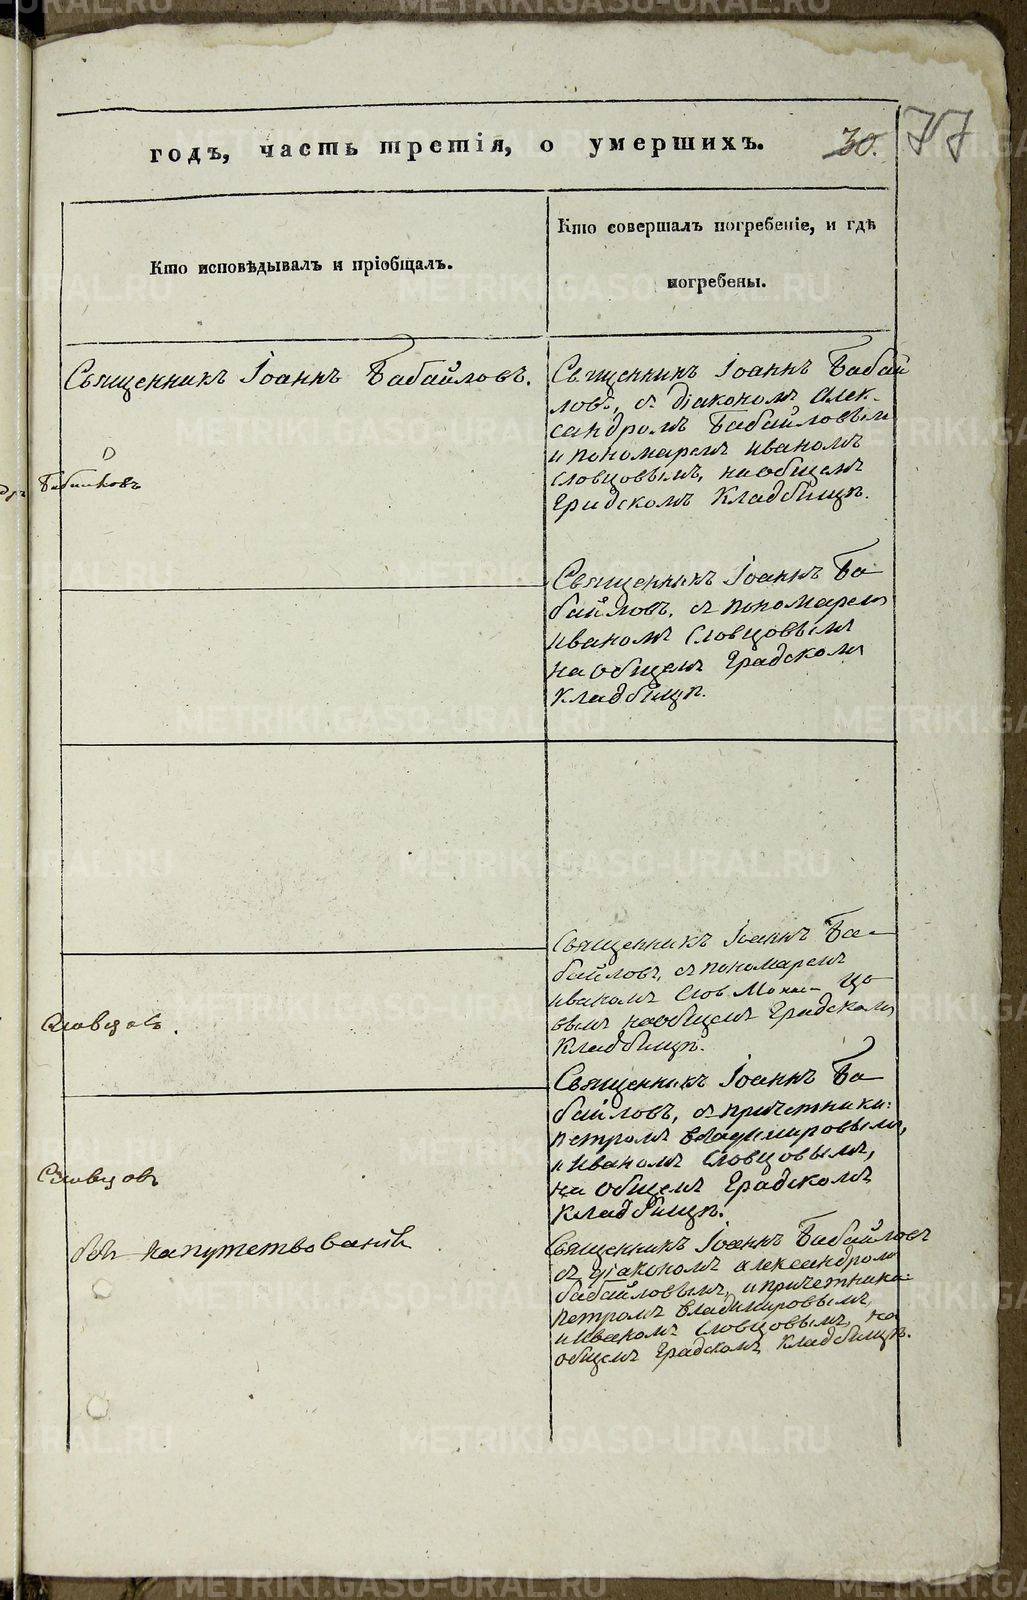 годъ, часть третія, о умершихъ. 30. 77
Кто исповѣдывалъ и пріобщалъ.
Кто совершалъ погребеніе, и гдѣ
погребены.
Священникъ Іоаннъ Бабайловъ.
Священникъ Іоаннъ Бабай
ловъ, съ діакономъ Алек-
сандромъ Бабайловымъ
и пономаремъ Иваномъ
Словцовымъ, на общемъ
Градскомъ Кладбищѣ.
Священникъ Іоаннъ Ба
байловъ, съ пономаремъ
Иваномъ Словцовымъ
на общемъ Градскомъ
Кладбищѣ.
Священникъ Іоаннъ Ба-
байловъ, съ пономаремъ
Иваномъ Слов цо
вымъ на общемъ Градскомъ
Кладбищѣ.
Словцовъ.
Священникъ Іоаннъ Ба
байловъ, съ причетники:
Петромъ Владимировымъ,
и Иваномъ Словцовымъ,
на общемъ Градскомъ
Кладбищѣ.
Словцовъ
безъ напутствованія
Священникъ Іоаннъ Бабайловъ
съ діакономъ Александромъ
Бабайловымъ, и причетники-
Петромъ Владимировымъ,
и Иваномъ Словцовымъ, на
общемъ Градскомъ Кладбищѣ.
METRIKI.GASO-URAL.RU